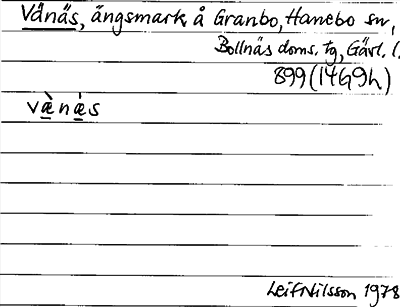 Vånäs, ängsmark å Granbo, Hanebo sn,
Bollnäs doms. tg, Gävl. l.
899 (14G9h)
væ̀næ̀s
Leif Nilsson 1978